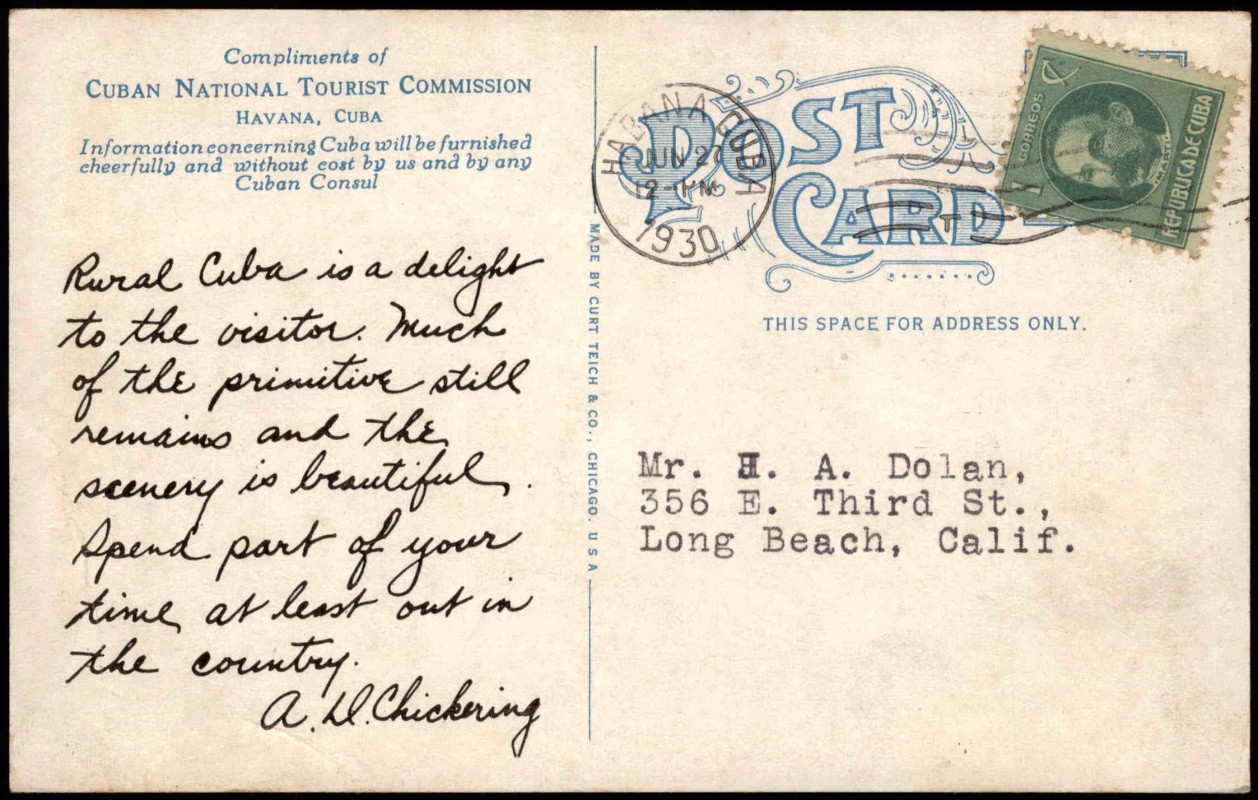 Compliments of
CUBAN NATIONAL TOURIST COMMISSION
HAVANA, CUBA
Information concerning Cuba will be furnished
cheerfully and without cost by us and by any
Cuban Consul
Rural Cuba is a delight
to the visitor. Much
of the primitive still
remains and the
scenery is beautiful.
Spend part of your
time at least out in
the country.
A. D. Chickering
MADE BY CURT TEICH & CO., CHICAGO. U.S.A
POST
CARD
HABANA CUBA
JUN 27
12-1 PM
1930
T
CORREOS
1
REPUBLICA DE CUBA
THIS SPACE FOR ADDRESS ONLY.
Mr. H. A. Dolan,
356 E. Third St.,
Long Beach, Calif.